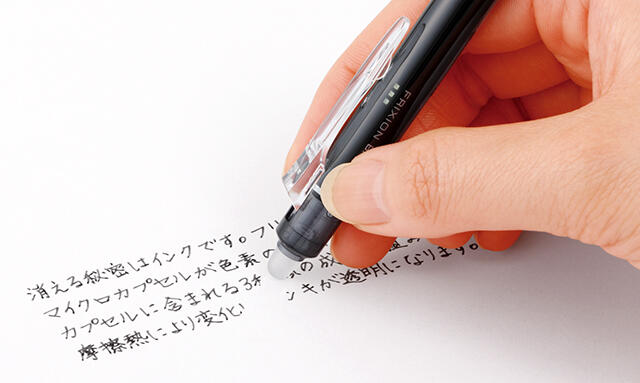 FRIXION B
消える秘密はインクです。フリ
マイクロカプセルが色素の の成
カプセルに含まれる3 ンキが透明になります。
摩擦熱により変化